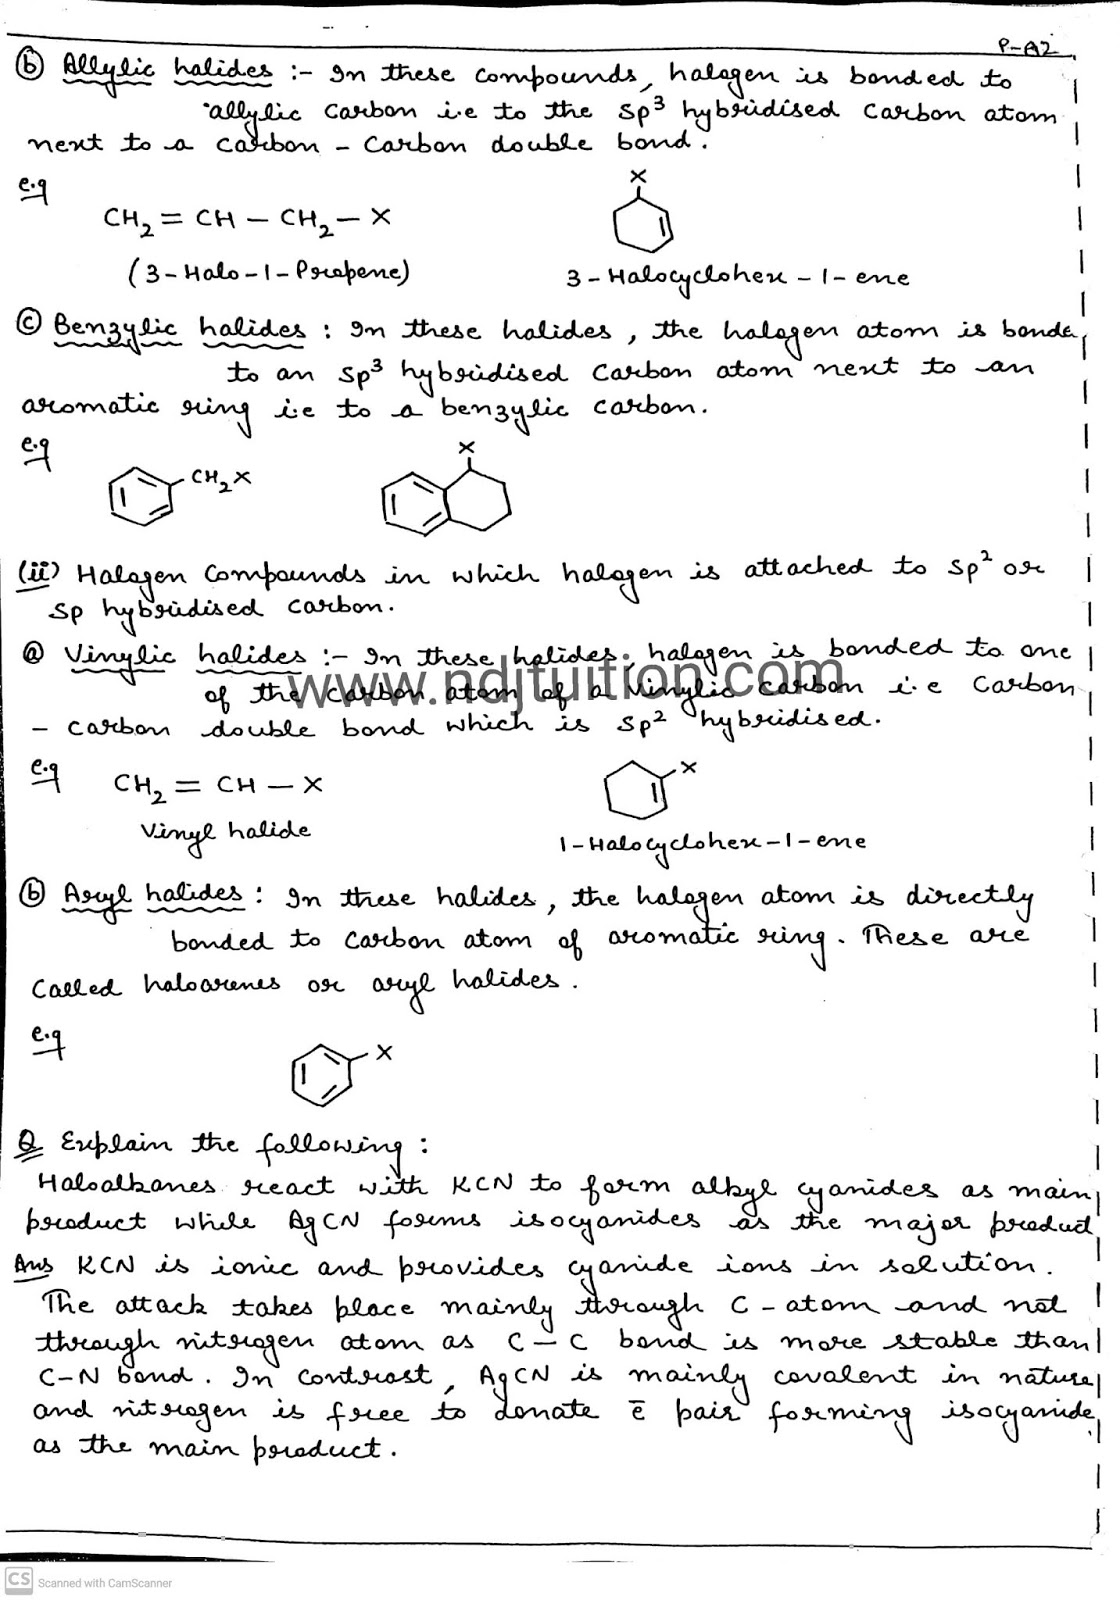 P-A2
ⓑ Allylic halides :- In these compounds, halogen is bonded to
allylic carbon i.e to the sp³ hybridised carbon atom
next to a carbon - carbon double bond.
e.g
X
CH₂ = CH — CH₂ — X
(3-Halo-1-Propene)
3-Halocyclohex-1-ene
ⓒ Benzylic halides : In these halides, the halogen atom is bonde
to an sp³ hybridised carbon atom next to an
aromatic ring i.e to a benzylic carbon.
e.g
X
CH₂X
(ii) Halogen Compounds in which halogen is attached to sp² or
sp hybridised carbon.
ⓐ Vinylic halides :- In these halides, halogen is bonded to one
www.ndjtuition.com
of the carbon atom of a vinylic carbon i.e carbon
- carbon double bond which is sp² hybridised.
e.g
CH₂ = CH — X
X
Vinyl halide
1-Halocyclohex-1-ene
ⓑ Aryl halides : In these halides, the halogen atom is directly
bonded to carbon atom of aromatic ring. These are
called haloarenes or aryl halides.
e.g
X
Q Explain the following :
Haloalkanes react with KCN to form alkyl cyanides as main
product while AgCN forms isocyanides as the major product
Ans KCN is ionic and provides cyanide ions in solution.
The attack takes place mainly through C-atom and not
through nitrogen atom as C — C bond is more stable than
C-N bond. In contrast, AgCN is mainly covalent in nature
and nitrogen is free to donate ē pair forming isocyanide
as the main product.
CS Scanned with CamScanner